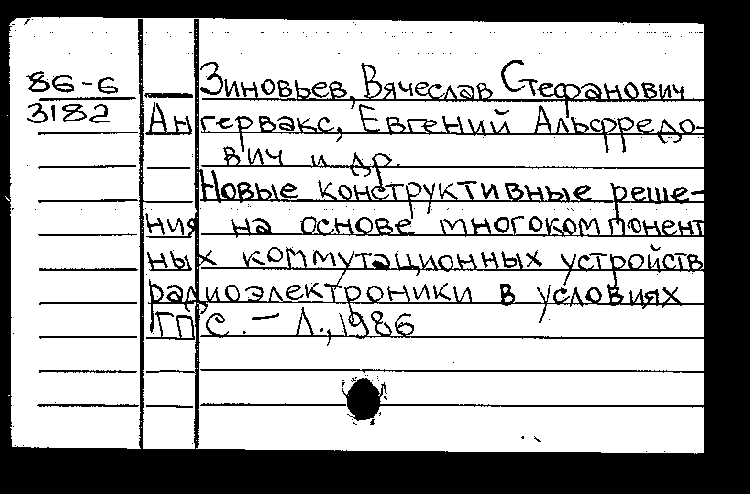 86-6
3182
Зиновьев, Вячеслав Стефанович
Ангервакс, Евгений Альфредо-
вич и др.
Новые конструктивные реше-
ния на основе многокомпонент
ных коммутационных устройств
радиоэлектроники в условиях
ГПС. — Л., 1986